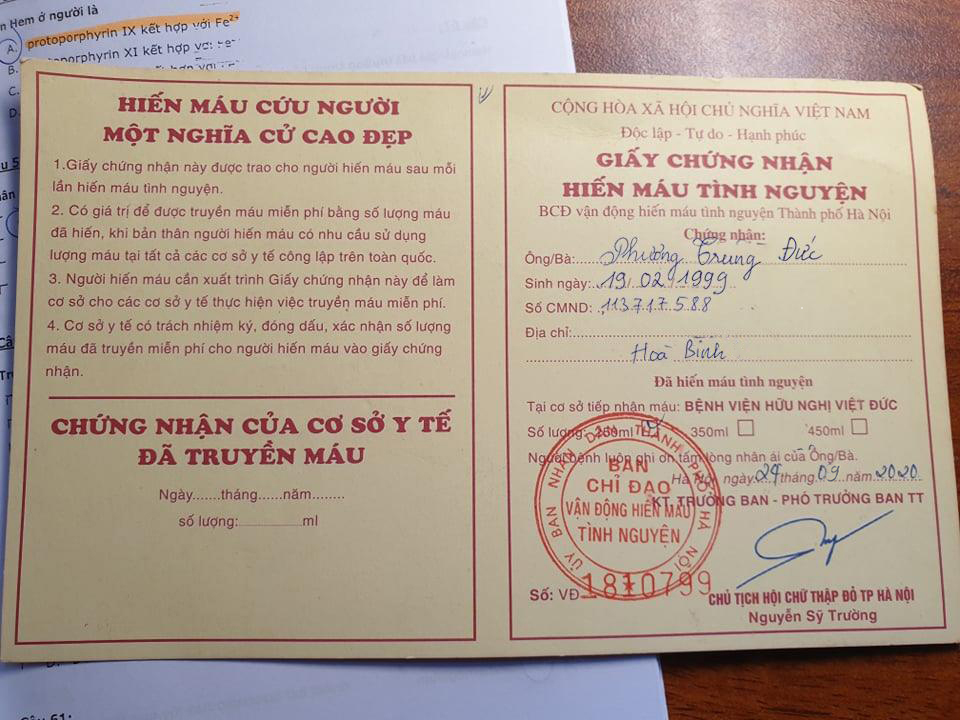 n Hem ở người là
A. protoporphyrin IX kết hợp với Fe²⁺
B. oporphyrin XI kết hợp với Fe
C.
D.
HIẾN MÁU CỨU NGƯỜI
MỘT NGHĨA CỬ CAO ĐẸP
1.Giấy chứng nhận này được trao cho người hiến máu sau mỗi
lần hiến máu tình nguyện.
2. Có giá trị để được truyền máu miễn phí bằng số lượng máu
đã hiến, khi bản thân người hiến máu có nhu cầu sử dụng
lượng máu tại tất cả các cơ sở y tế công lập trên toàn quốc.
3. Người hiến máu cần xuất trình Giấy chứng nhận này để làm
cơ sở cho các cơ sở y tế thực hiện việc truyền máu miễn phí.
4. Cơ sở y tế có trách nhiệm ký, đóng dấu, xác nhận số lượng
máu đã truyền miễn phí cho người hiến máu vào giấy chứng
nhận.
CHỨNG NHẬN CỦA CƠ SỞ Y TẾ
ĐÃ TRUYỀN MÁU
Ngày.......tháng......năm........
số lượng:................ml
CỘNG HÒA XÃ HỘI CHỦ NGHĨA VIỆT NAM
Độc lập - Tự do - Hạnh phúc
GIẤY CHỨNG NHẬN
HIẾN MÁU TÌNH NGUYỆN
BCĐ vận động hiến máu tình nguyện Thành phố Hà Nội
Chứng nhận:
Ông/Bà: Phương Trung Đức
Sinh ngày: 19/02/1999
Số CMND: 113717588
Địa chỉ:
Hoà Bình
Đã hiến máu tình nguyện
Tại cơ sở tiếp nhận máu: BỆNH VIỆN HỮU NGHỊ VIỆT ĐỨC
Số lượng: 250ml 350ml 450ml
Người bệnh luôn ghi ơn tấm lòng nhân ái của Ông/Bà.
Hà Nội, ngày 24 tháng 09 năm 2020
KT. TRƯỞNG BAN - PHÓ TRƯỞNG BAN TT
ỦY BAN NHÂN DÂN THÀNH PHỐ HÀ NỘI
BAN
CHỈ ĐẠO
VẬN ĐỘNG HIẾN MÁU
TÌNH NGUYỆN
Số: VĐ 1810799
CHỦ TỊCH HỘI CHỮ THẬP ĐỎ TP HÀ NỘI
Nguyễn Sỹ Trường
Câu 61: